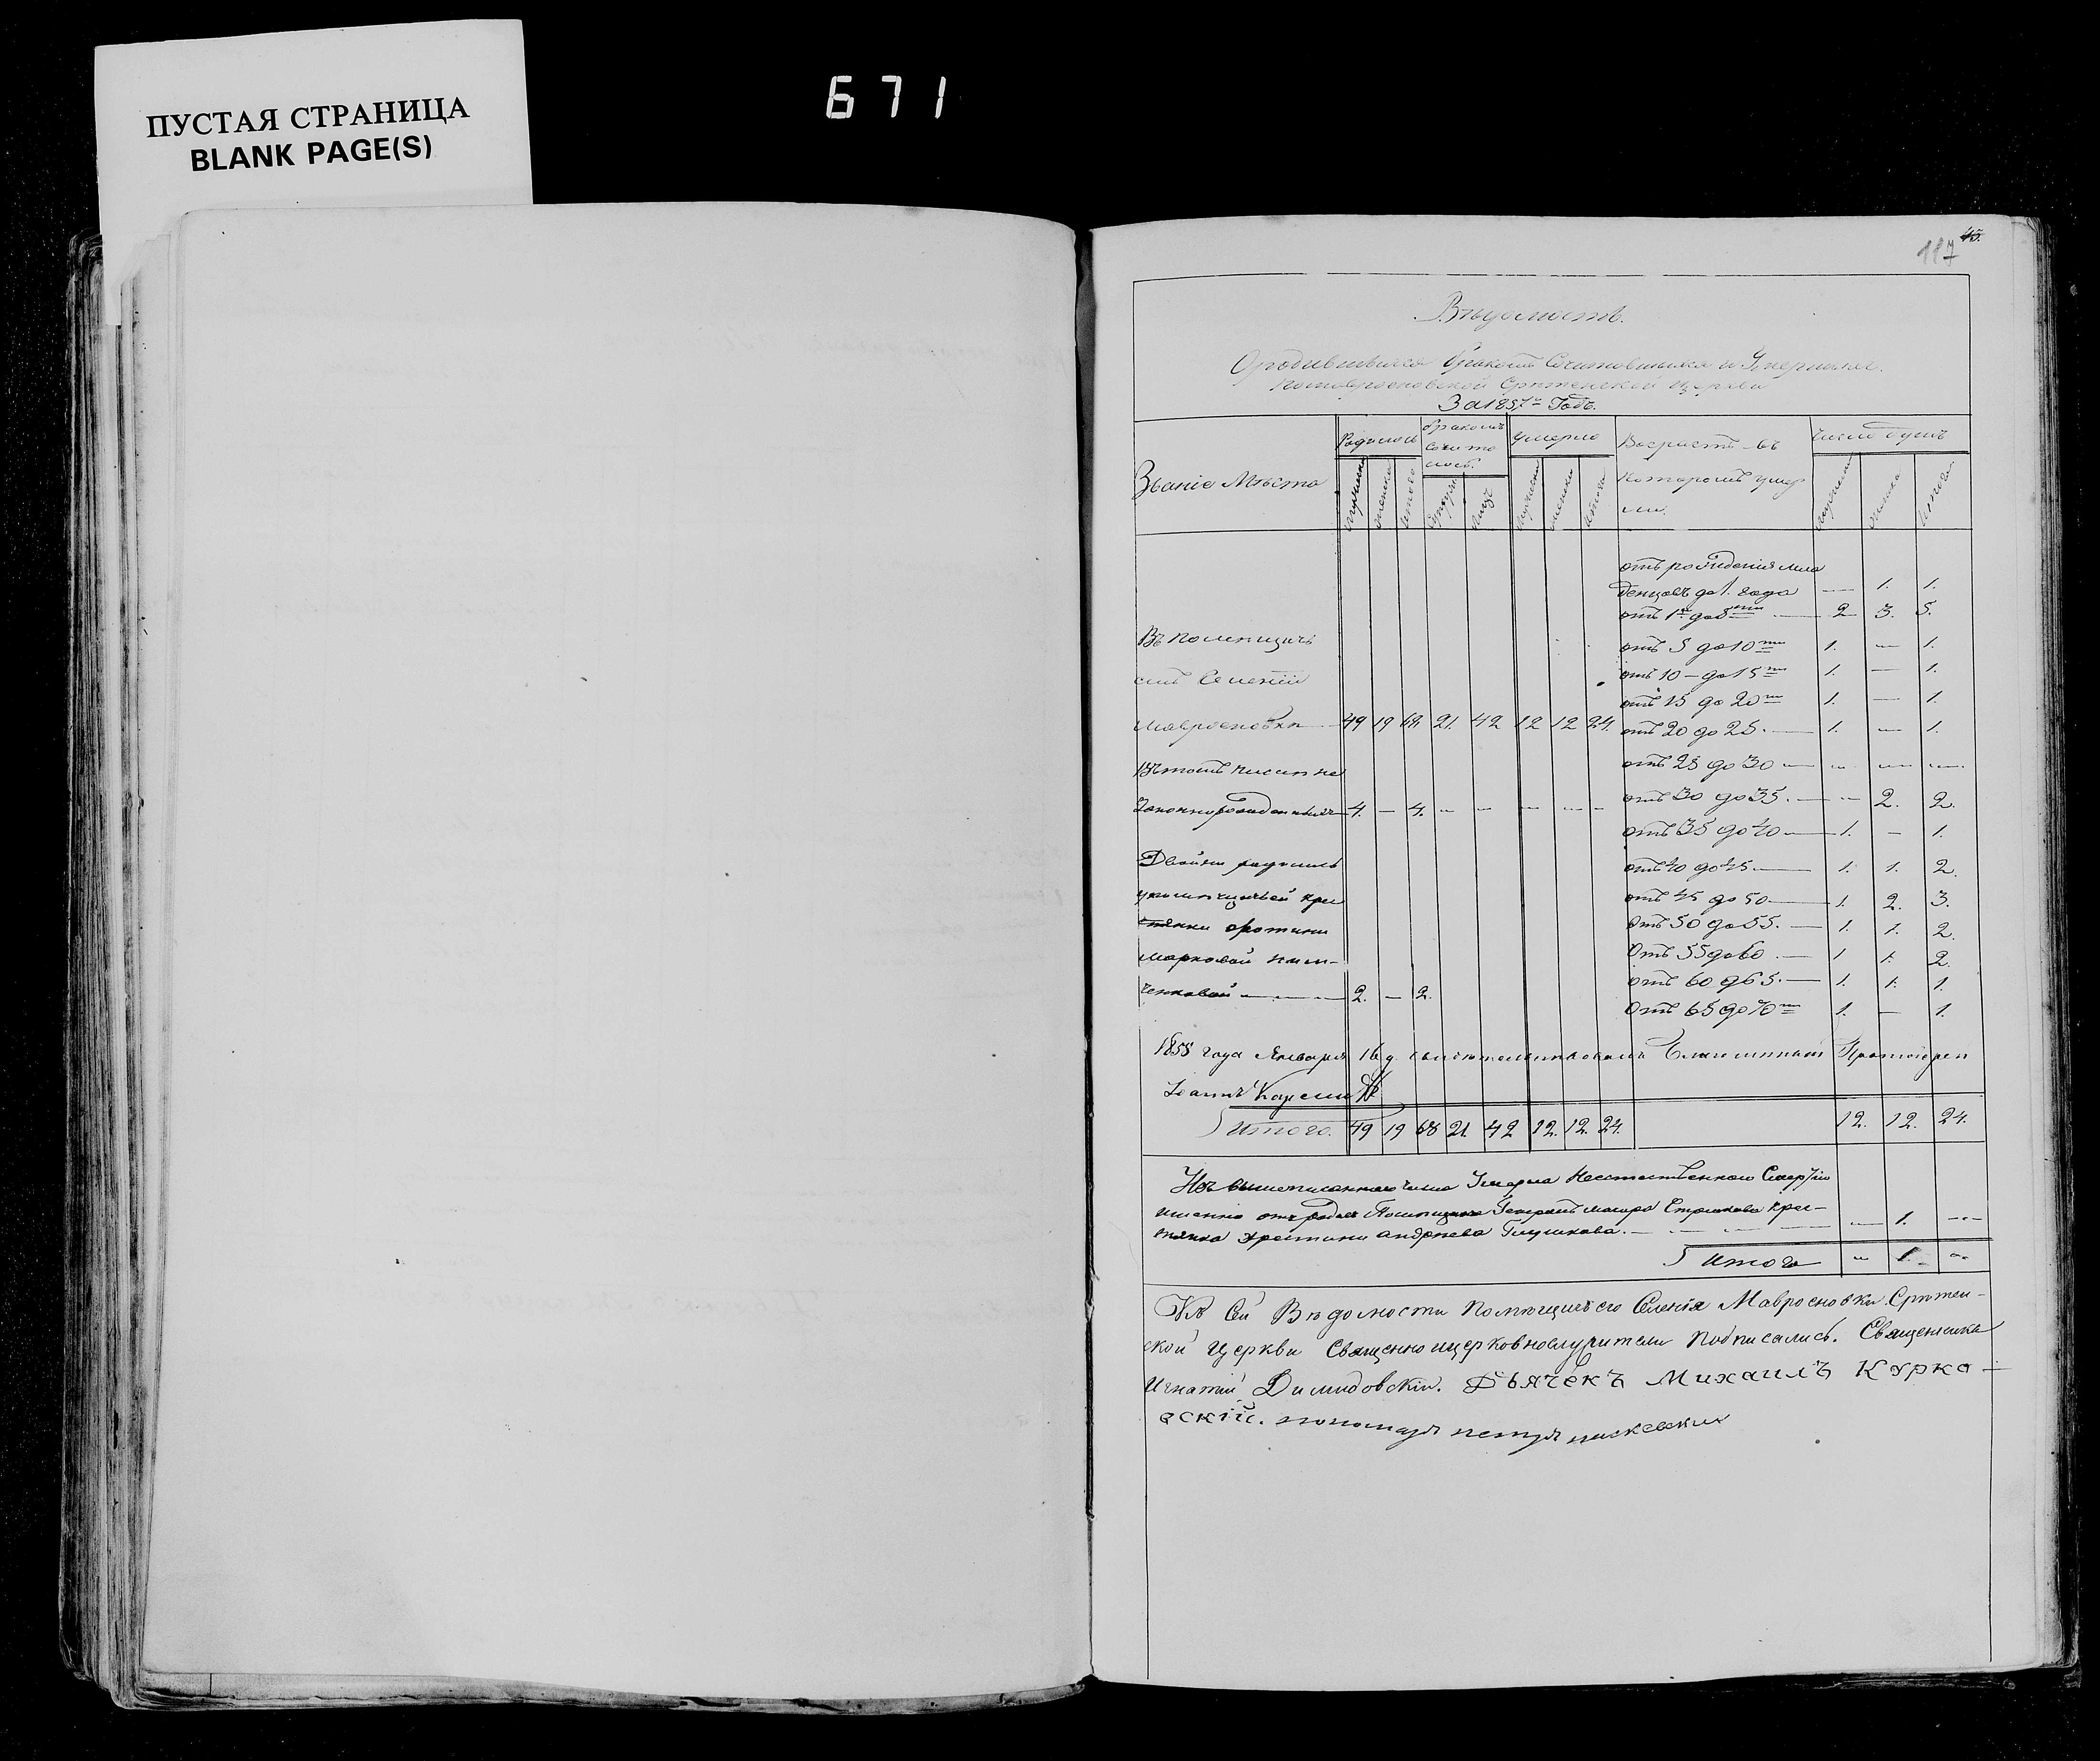 ПУСТАЯ СТРАНИЦА
BLANK PAGE(S)
671
117 45.
Вѣдомость.
О родившихся бракомъ Сочитовшихся и Умершихъ
по мавросновской Срѣтенской Церкви
За 1857й Годъ.
Званіе Мѣста Родилось бракомъ Сочиталось. умерло Возрастъ въ которомъ умерли. число душъ
мужеска женска итого Супруж лицъ мужеска женска итого мужеска женска итого
отъ рожденія младенцовъ до 1. года — 1. 1.
отъ 1го до 5ти — 2 3. 5.
Въ помѣщичь отъ 5 до 10ти 1. — 1.
емъ Селеніи отъ 10 — до 15ти 1. — 1.
отъ 15 до 20ти 1. — 1.
мавросновки 49 19 68. 21. 42 12 12 24. отъ 20 до 25. — 1. — 1.
Въ томъ числѣ не отъ 25 до 30 — — — —
законнорожденныхъ 4. — 4. — — — — — отъ 30 до 35. — — 2. 2.
отъ 35 до 40 — 1. — 1.
Двойни родились отъ 40 до 45. — 1. 1. 2.
у помѣщичьей крес отъ 45 до 50 — 1. 2. 3.
тянки отъ 50 до 55. — 1. 1. 2.
марковой отъ 55 до 60. — 1 1. 2.
ченковой — 2. — 2. отъ 60 до 65. — 1. 1. 1.
отъ 65 до 70ти 1. — 1.
1858 года Января 16 д. свидѣтельствовалъ Благочинный Протоіерей
Іоаннъ
Итого. 49 19 68 21. 42 12. 12. 24. 12. 12. 24.
Изъ вышеписаннаго числа Умерла Неестественною Смертію
именно отъ родовъ Помѣщика Генералъ маіора Стрпкова крес-
тянка Христина андреева Глушкова. — — 1. —
Итого — 1. —
Къ Сей Вѣдомости Помѣщичьего Селенія Мавросновки. Срѣтен-
ской Церкви Священноицерковнослужители подписались. Священникъ
Игнатий Димидовскій. Дьячекъ Михаилъ Курко-
вскій. пономарь петръ